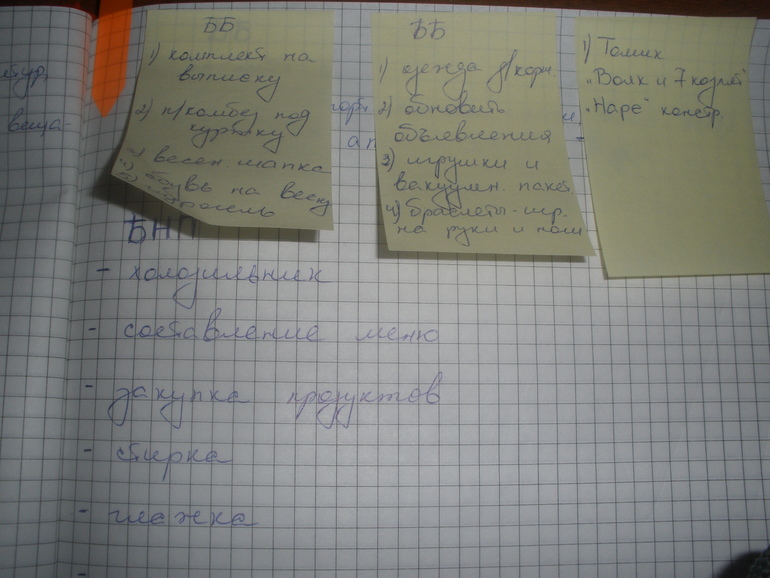 ББ
1) комплект на
выписку
2) п/комбез под
куртку
3) весен. шапка
4) обувь на весну
5)
ББ
1) одежда д/корм.
2) обновить
объявления
3) игрушки и
вакуумн. пакет
4) браслеты-игр.
на руки и ноги
1) Томик
"Волк и 7 козлят"
"Наре" констр.
веща-
БНП
- холодильник
- составление меню
- закупка продуктов
- стирка
- глажка
-